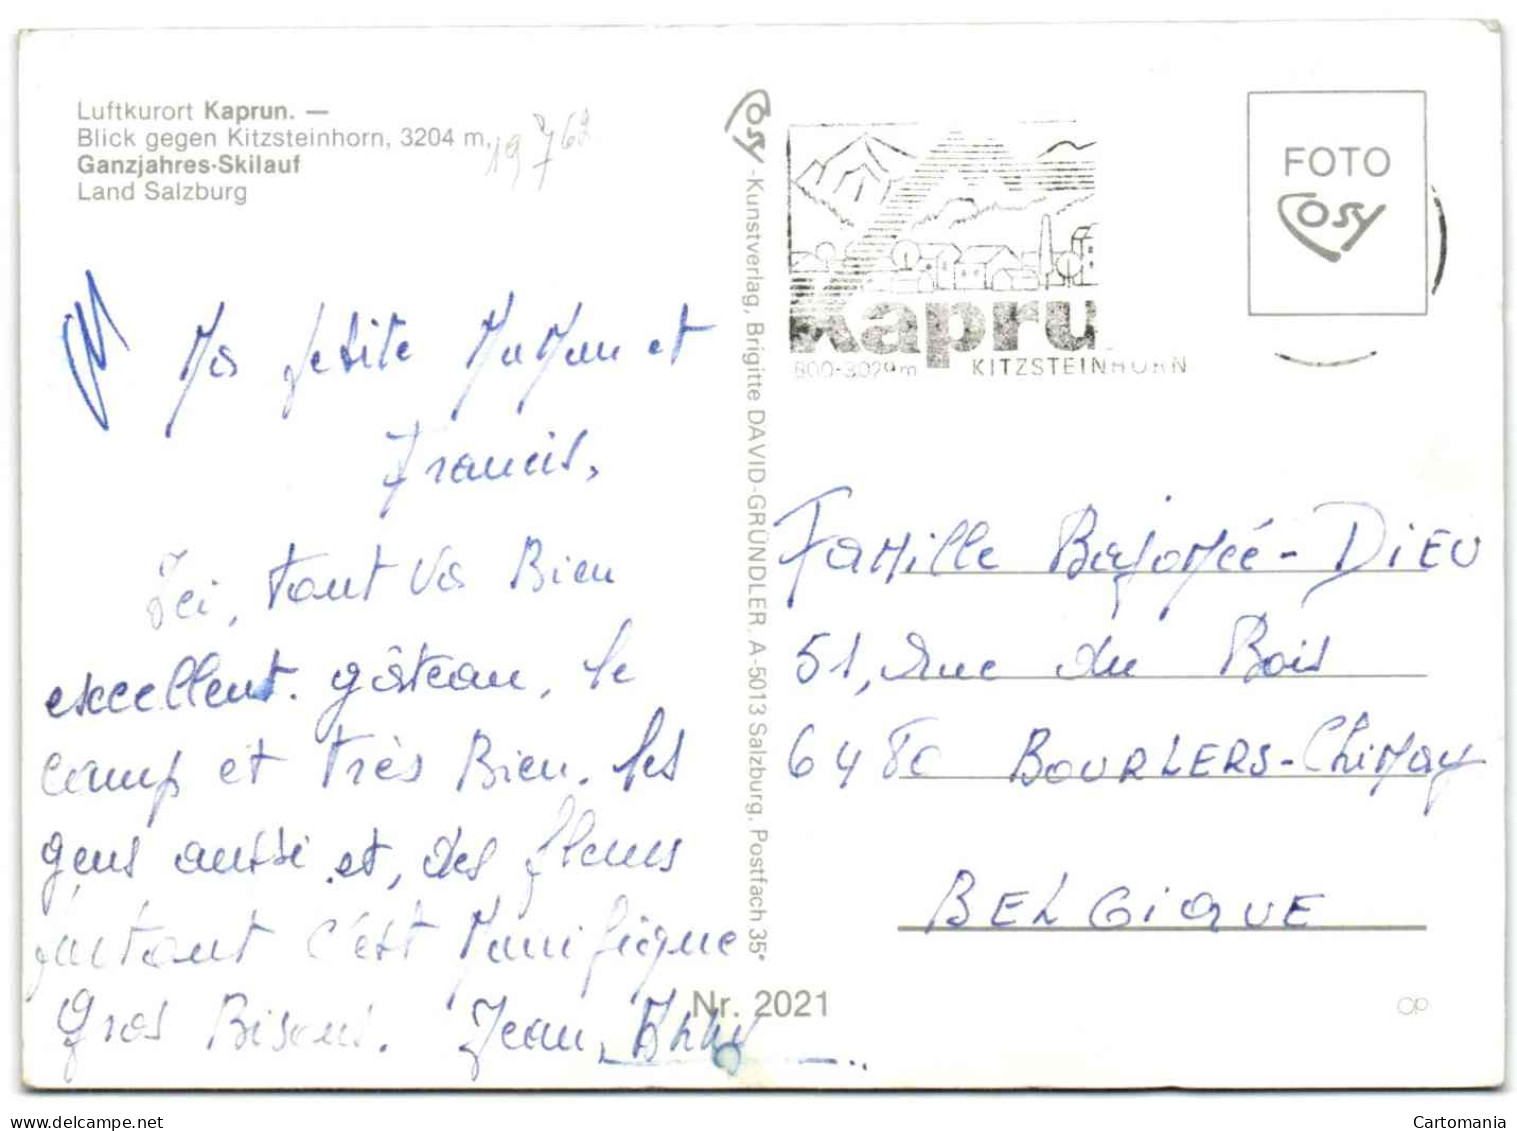 Luftkurort Kaprun. —
Blick gegen Kitzsteinhorn, 3204 m,
Ganzjahres-Skilauf
Land Salzburg
19762
Ma petite Maman et
Francis,
Ici, tout va Bien
excellent. gâteau, le
camp et très Bien. les
gens aussi et, des fleurs
partout c'est Manifique
Gros Bisous. Jean,
Cosy-Kunstverlag, Brigitte DAVID-GRÜNDLER, A-5013 Salzburg, Postfach 35*
Nr. 2021
Kapru
800-3029m KITZSTEINHORN
FOTO
Cosy
FAMille Bajomée-DiEU
51, rue du Bois
6480 BOURLERS-ChiMay
BELGiQUE
Cartomania